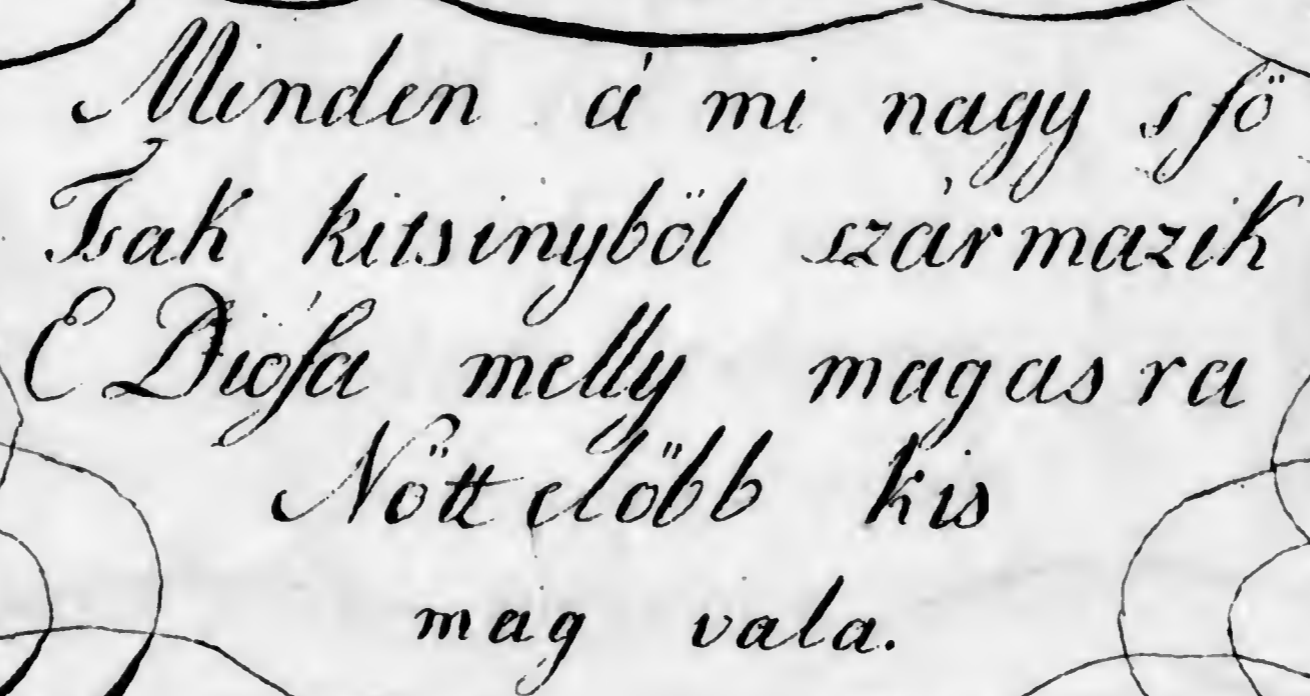 Minden á mi nagy s fö
Tsak kitsinyböl származik
E Diófa melly magasra
Nött elöbb kis
mag vala.